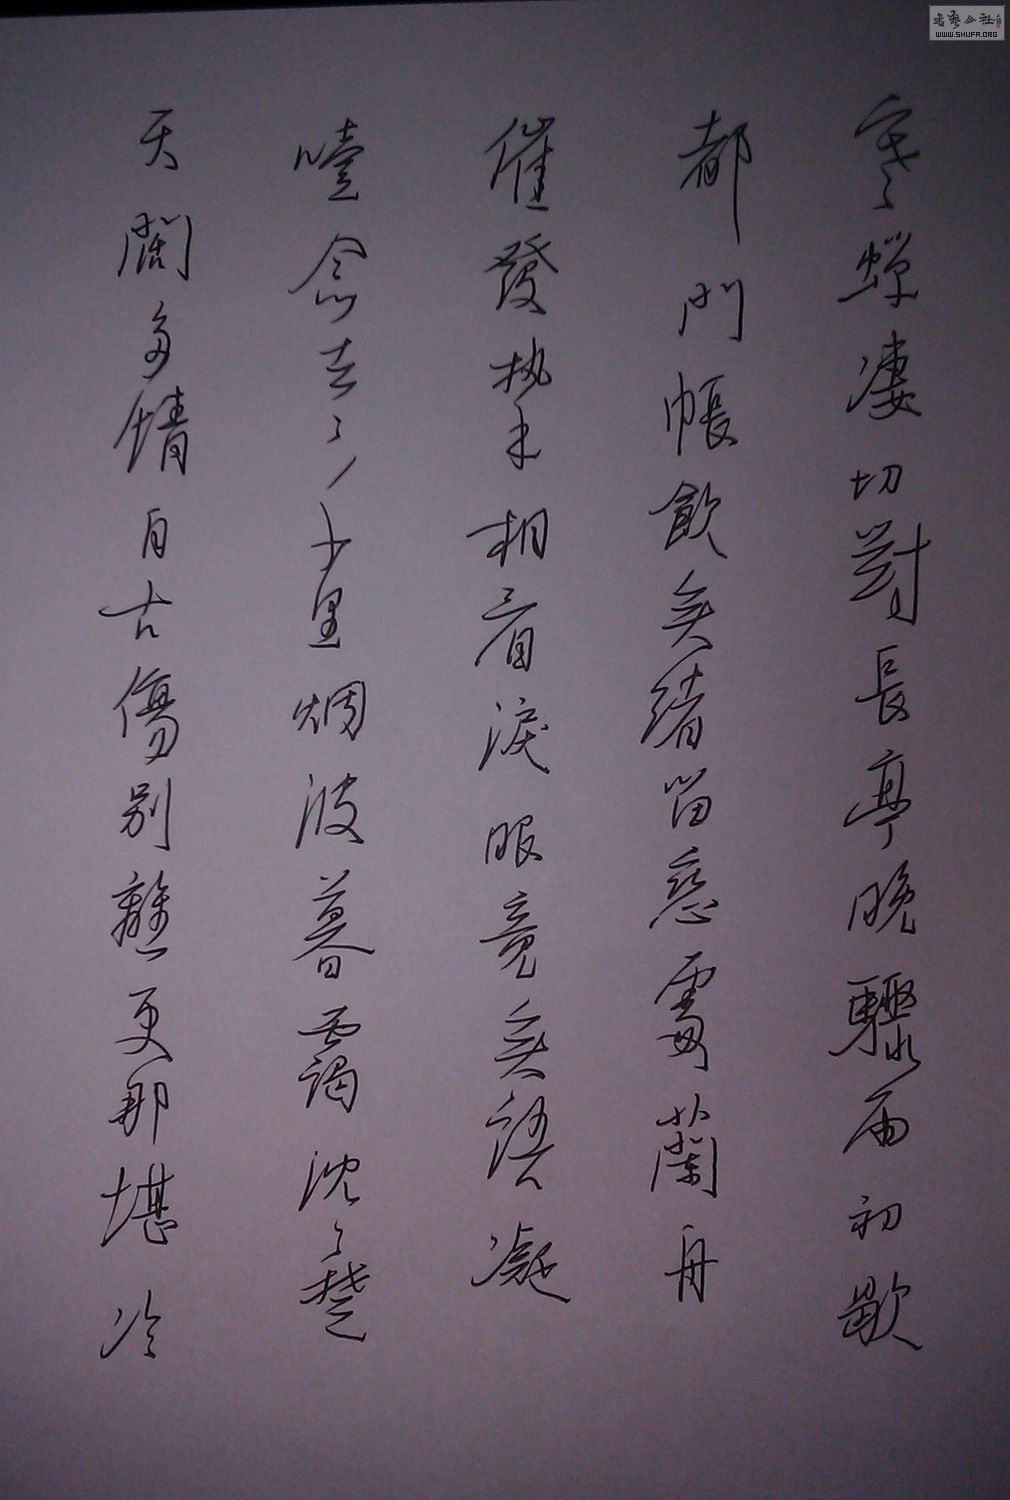 寒蝉凄切對長亭晚驟雨初歇
都門帳飲無緒留恋處蘭舟
催發执手相看淚眼竟無語凝
噎念去々千里烟波暮靄沈々楚
天闊多情自古傷別離更那堪冷
书艺公社
WWW.SHUFA.ORG